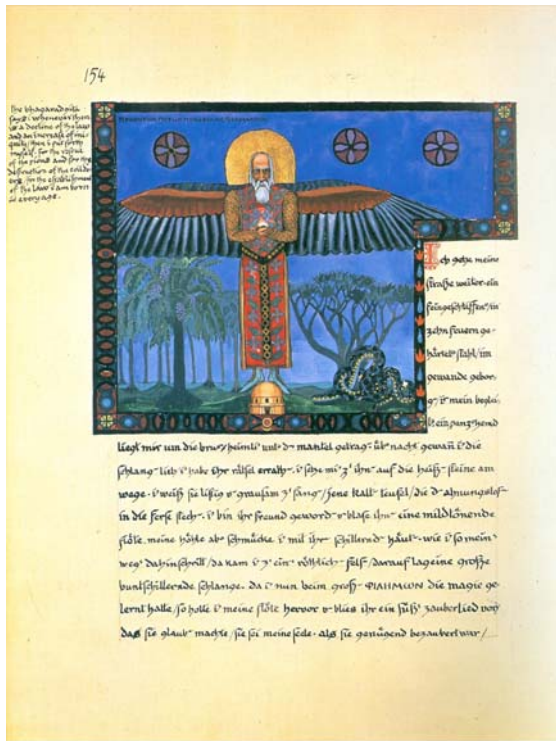 154
the bhagavadgita
says: whenever there
is a decline of the law
and an increase of ini
quity / then i put forth
myself. for the rescue
of the pious and for the
destruction of the evildo
ers, for the establishment
of the law i am born
in every age.
Ich gehe meine
straße weiter. ein
feingeschliffen / in
zehn feuern ge-
härtet stahl / im
gewande gebor-
ist mein beglei-
panzerhemd
liegt mir um die brust / heimli unt d mantel getrag. üb nacht gewañ i die
schlang lieb i habe ihr räthsel errath. i setze mi z ihn auf die heiß steine am
wege. i weiß sie listig u grausam z fang / jene kalt teufel / die d ahnungslos
in die ferse stech. i bin ihr freund geword u blase ihn eine mildtönende
flöte. meine höhle ab schmücke i mit ihr schillernd häut. wie i so mein
weg dahinschritt / da kam i z ein röthlich fels / darauf lag eine große
buntschillernde schlange. da i nun beim groß ΦΙΛΗΜΩΝ die magie ge-
lernt hatte / so holte i meine flöte hervor u blies ihr ein süß zauberlied vor /
das sie glaub machte / sie sei meine seele. als sie genügend bezaubert war /